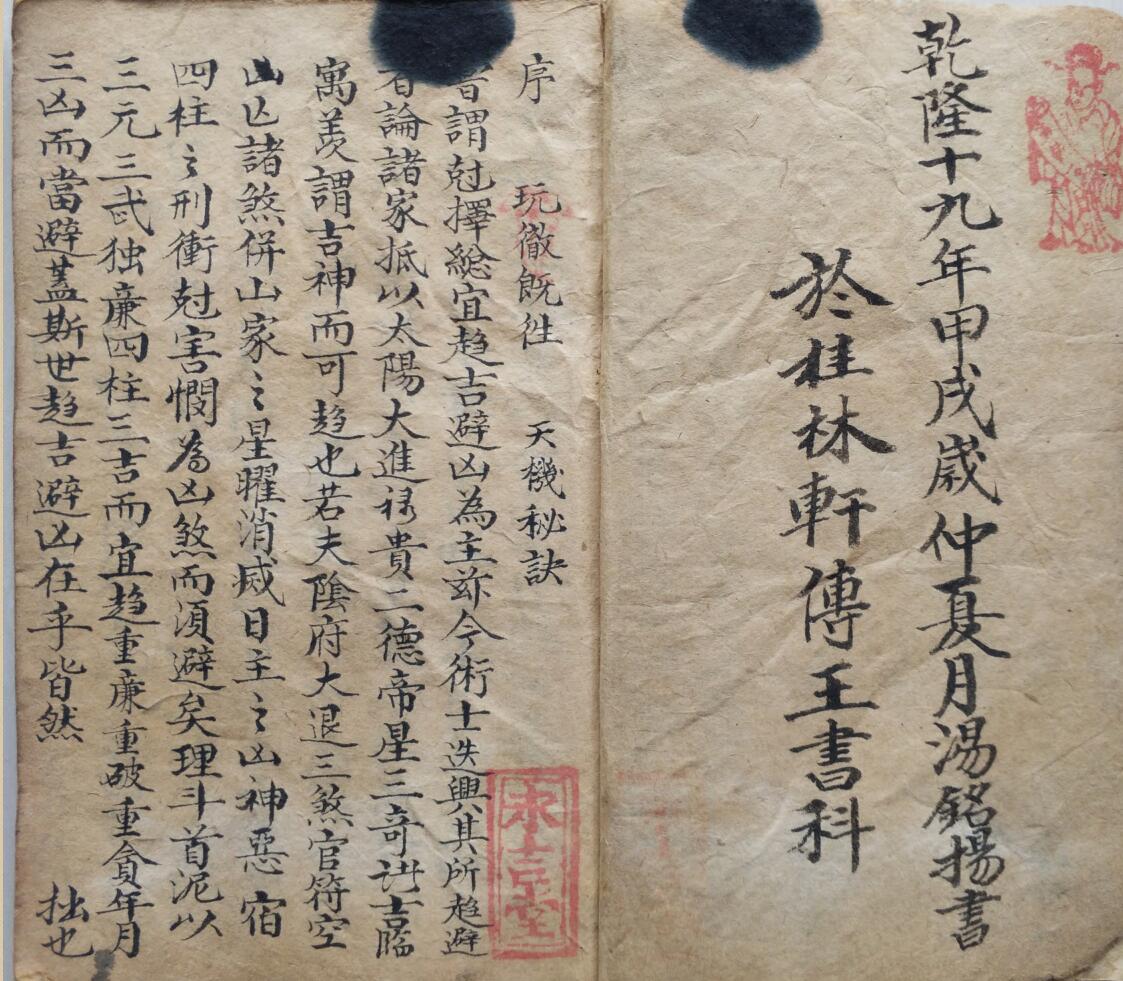 乾隆十九年甲戌歲仲夏月湯銘揚書
於桂林軒傳王書科
序 玩徹既徃 天機秘訣
謂尅擇総宜趋吉避凶為主玆今術士迭興其所趋避
者論諸家抵以太陽大進禄貴二德帝星三奇諸吉臨
寓羡謂吉神而可趋也若夫陰府大退三煞官符空
山亡諸煞併山家之星曜消滅日主之凶神惡宿
四柱之刑衝尅害憫為凶煞而須避矣理斗首泥以
三元三武独廉四柱三吉而宜趋重廉重破重貪年月
三凶而當避蓋斯世趋吉避凶在乎皆然 拙也
永吉堂